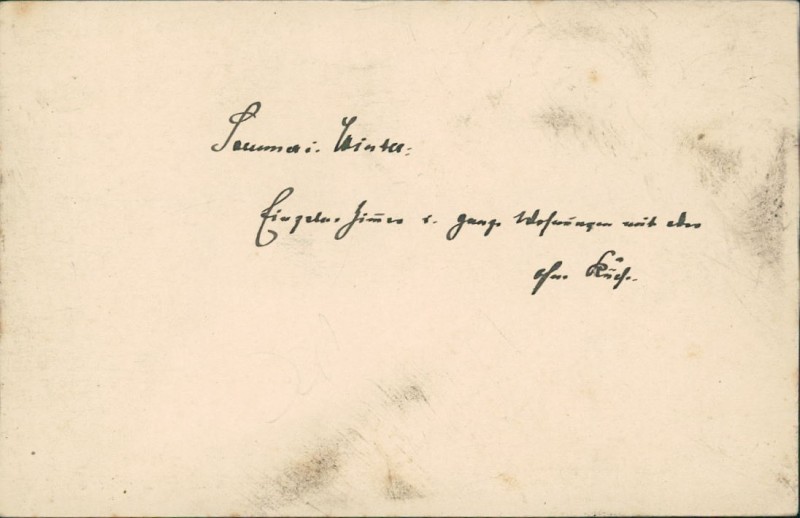 Sommer u. Winter:
Einzelne Zimmer u. ganze Wohnungen mit oder
ohne Küche.